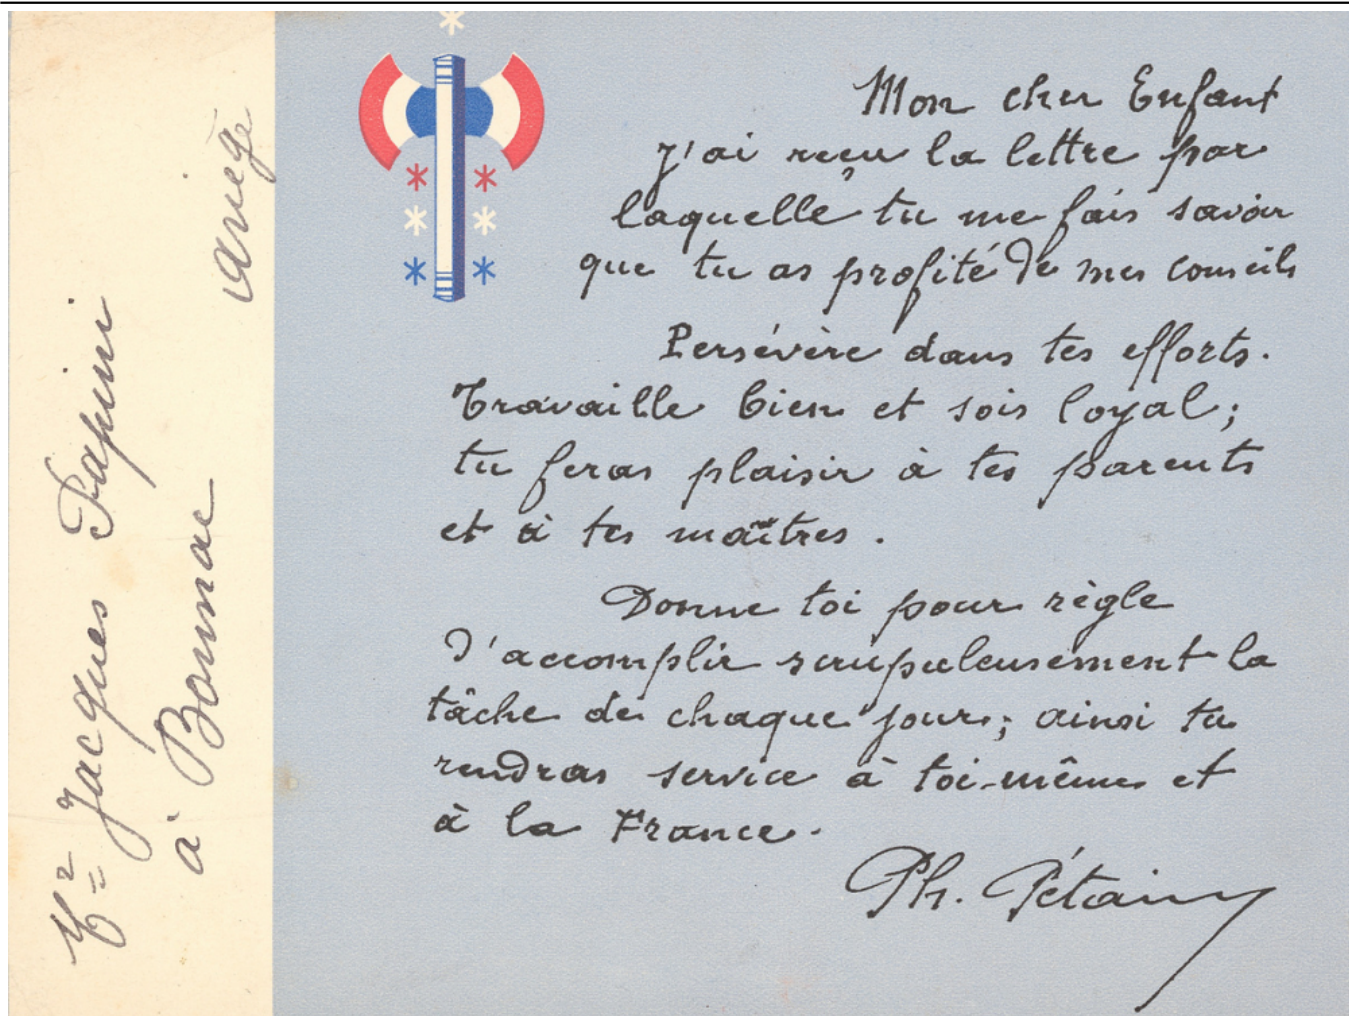 Mr Jacques Papini
à Bonnac
Ariège
Mon cher Enfant
j'ai reçu la lettre par
laquelle tu me fais savoir
que tu as profité de mes conseils
Persévère dans tes efforts.
Travaille bien et sois loyal;
tu feras plaisir à tes parents
et à tes maîtres.
Donne toi pour règle
d'accomplir scrupuleusement la
tâche de chaque jour; ainsi tu
rendras service à toi-même et
à la France.
Ph. Pétain